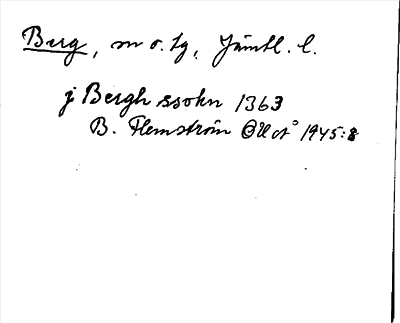 Berg, m o. tg, Jämtl. l.
j Bergh ssokn 1363
B. Flemström 1945:8